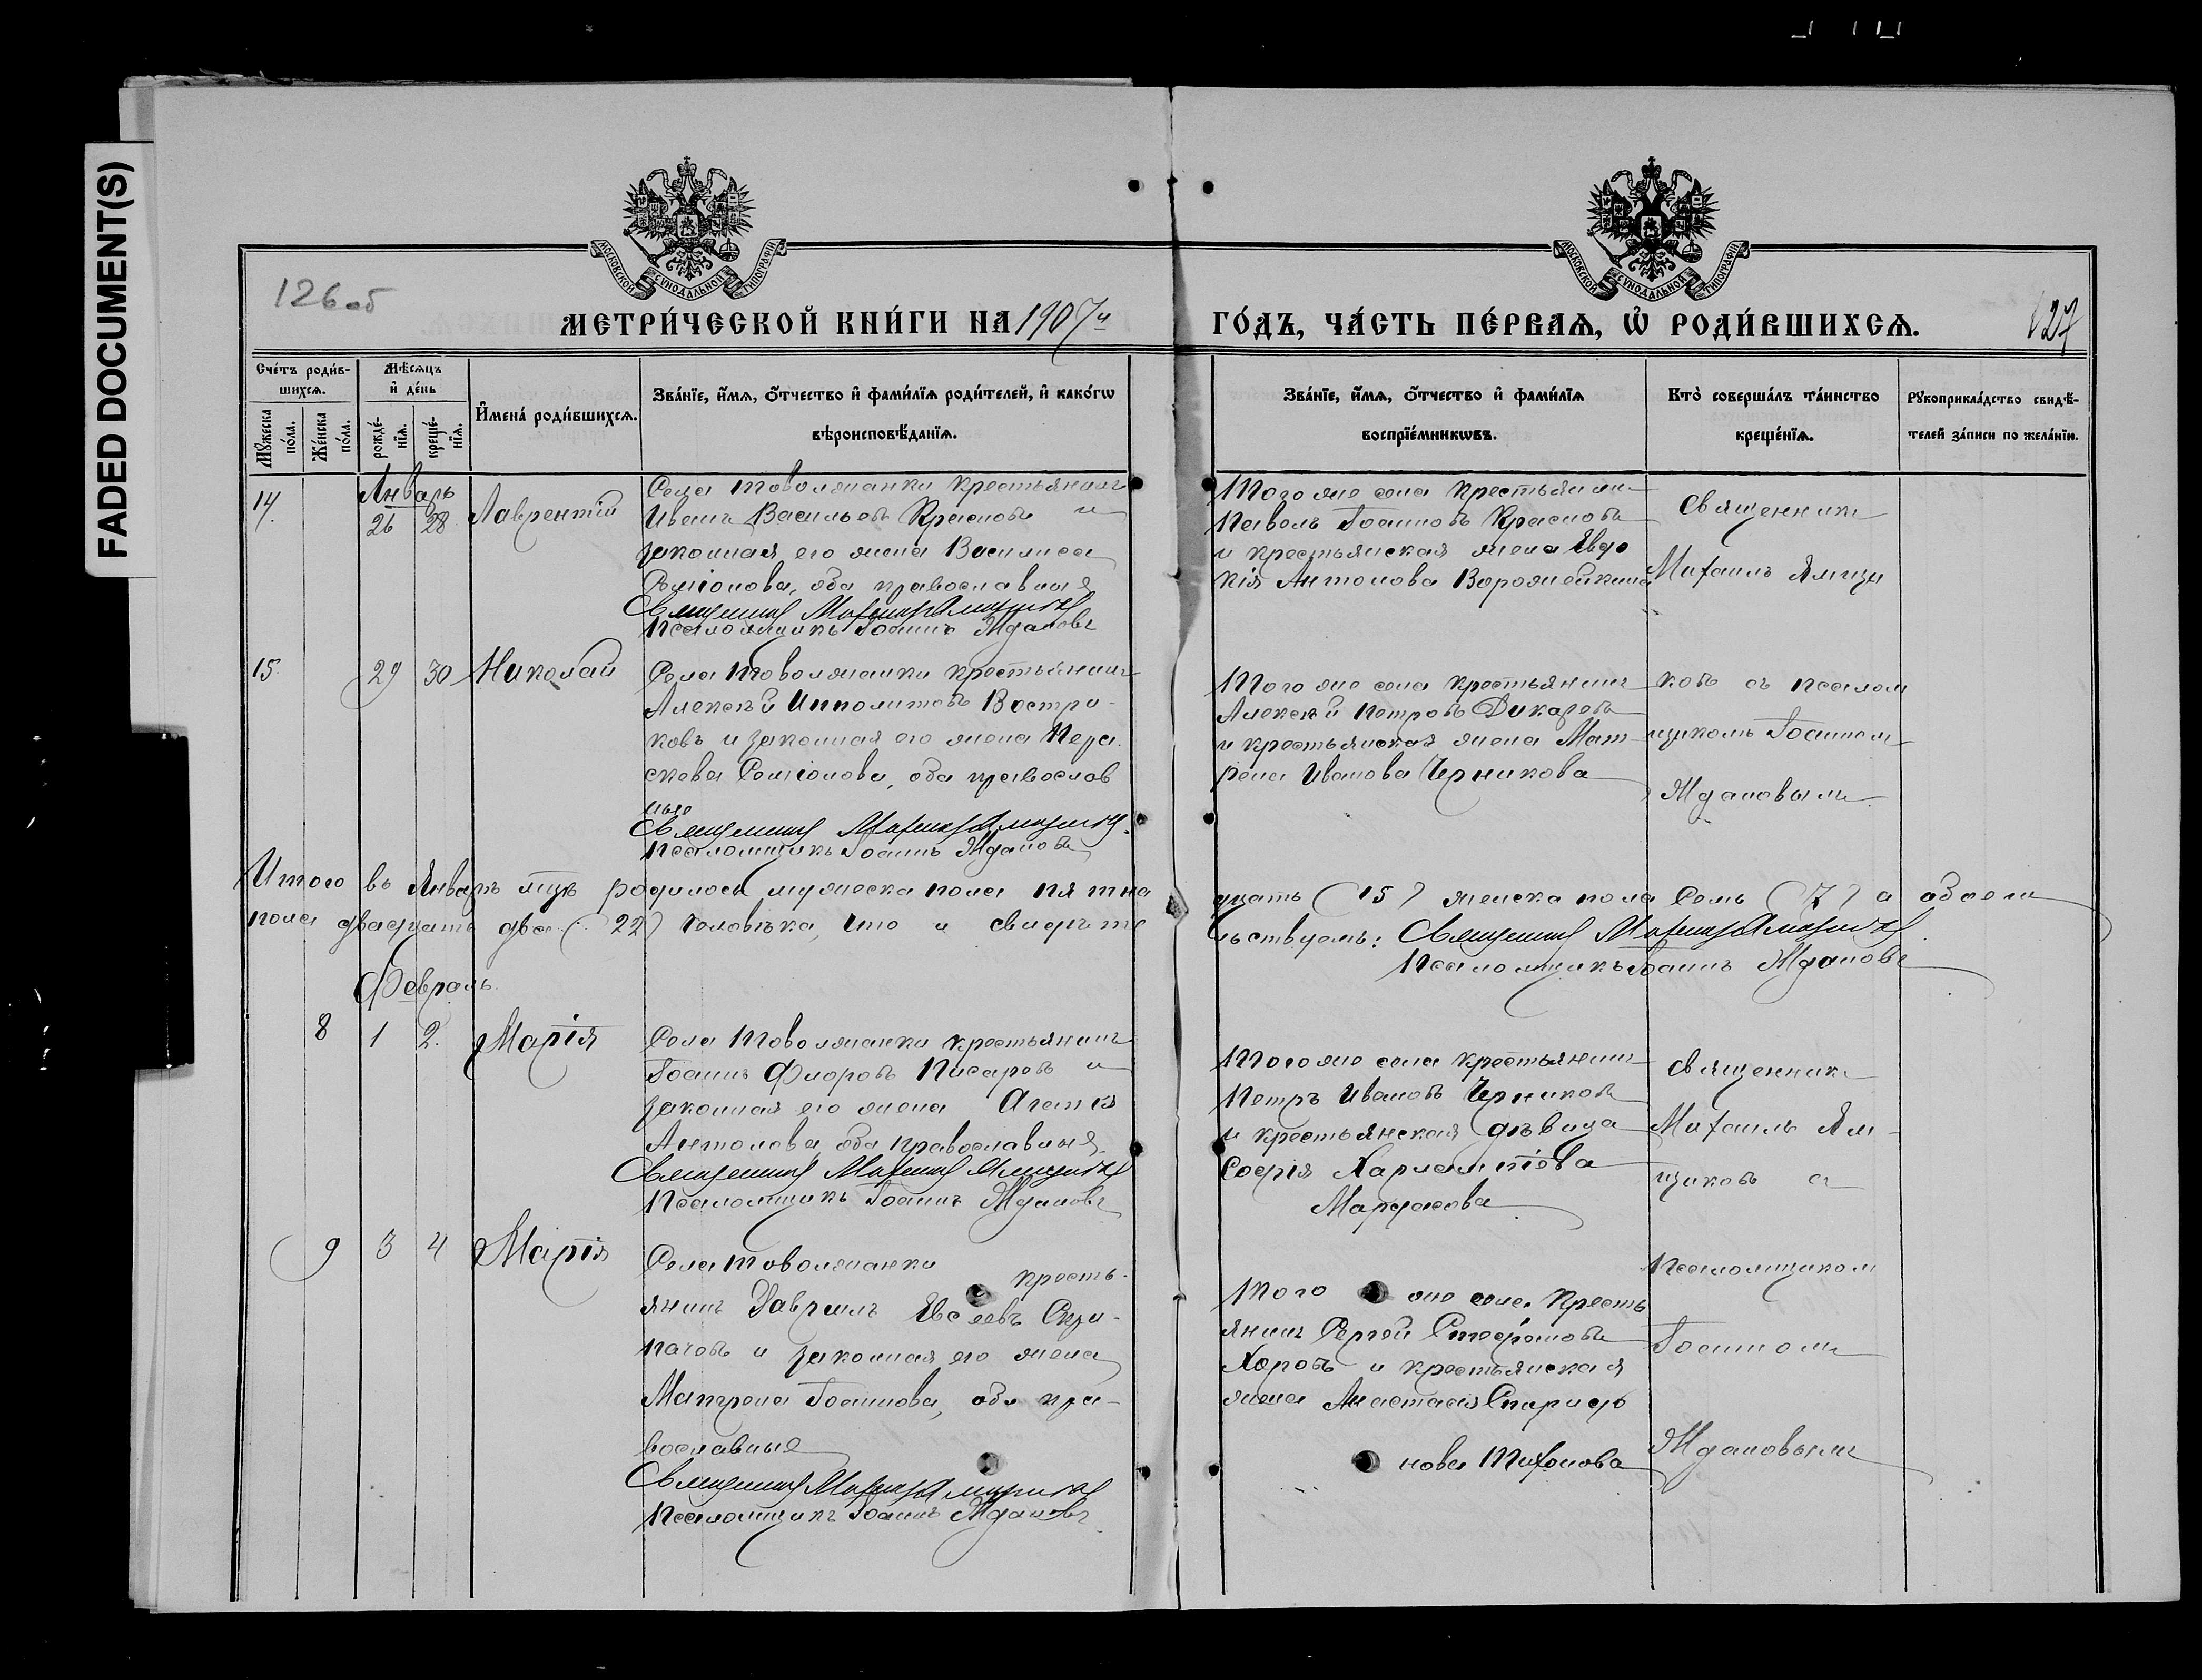 FADED DOCUMENT(S)
126об
127
МОСКОВСКОЙ СѴНОДАЛЬНОЙ ТИПОГРАФІИ
МОСКОВСКОЙ СѴНОДАЛЬНОЙ ТИПОГРАФІИ
МЕТРИ́ЧЕСКОЙ КНИ́ГИ НА 1907й ГО́ДЪ, ЧА́СТЬ ПЕ́РВАѦ, Ѡ҆ РОДИ́ВШИХСѦ.
Сче́тъ роди́в-
шихсѧ.
Мꙋ́жеска по́ла.
Же́нска по́ла.
Мѣ́сѧцъ
и҆ де́нь
рожде́-
нїѧ.
креще́-
нїѧ.
И҆мена̀ роди́вшихсѧ.
Зва́нїе, и҆́мѧ, ѻ҆́тчество и҆ фами́лїѧ роди́телей, и҆ како́гѡ
вѣроисповѣ́данїѧ.
Зва́нїе, и҆́мѧ, ѻ҆́тчество и҆ фами́лїѧ
воспрїе́мникѡвъ.
Кто̀ соверша́лъ та́инство
креще́нїѧ.
Рꙋкоприкла́дство свидѣ́-
телей за́писи по жела́нїю.
Январь
14. 26 28 Лаврентій
Села Товолжанки крестьянинъ
Иванъ Васильевъ Красновъ и
законная его жена Василиса
Симіонова, оба православные
Священникъ Михаилъ Ямщиковъ
Псаломщикъ Іоаннъ Ждановъ
Того же села крестьянинъ
Павелъ Іоанновъ Красновъ
и крестьянская жена Евдо
кія Антонова Ворожейкина
Священникъ
Михаилъ Ямщи
15. 29 30 Николай
Села Товолжанки крестьянинъ
Алексѣй Ипполитовъ Востри-
ковъ и законная его жена Пара
скева Симіонова, оба православ
ные
Священникъ Михаилъ Ямщиковъ
Псаломщикъ Іоаннъ Ждановъ
Того же села крестьянинъ
Алексѣй Петровъ Дикаревъ
и крестьянская жена Мат-
рона Иванова Черникова
ковъ съ псалом
щикомъ Іоанномъ
Ждановымъ
Итого въ Январѣ мцѣ родилось мужеска пола пятна дцать (15) женска пола семь (7) а обоего
пола двадцать два (22) человѣка, что и свидѣте льствуемъ: Священникъ Михаилъ Ямщиковъ
Псаломщикъ Іоаннъ Ждановъ
Февраль.
8 1 2. Марія
Села Товолжанки крестьянинъ
Іоаннъ Флоровъ Писаревъ и
законная его жена Агапія
Антонова, оба православные
Священникъ Михаилъ Ямщиковъ
Псаломщикъ Іоаннъ Ждановъ
Того же села крестьянинъ
Петръ Ивановъ Черниковъ
и крестьянская дѣвица
Софія Харлампіева
Мардасова
Священникъ
Михаилъ Ям-
щиковъ съ
9 3 4 Марія
Села Товолжанки кресть-
янинъ Гавріилъ Евсеевъ
и законная его жена
Матрона Іоаннова, оба пра-
вославные
Священникъ Михаилъ Ямщиковъ
Псаломщикъ Іоаннъ Ждановъ
Того же села кресть
янинъ Сергѣй Стефановъ
Хоровъ и крестьянская
жена Анастасія Спиридо
нова Тихонова
Псаломщикомъ
Іоанномъ
Ждановымъ